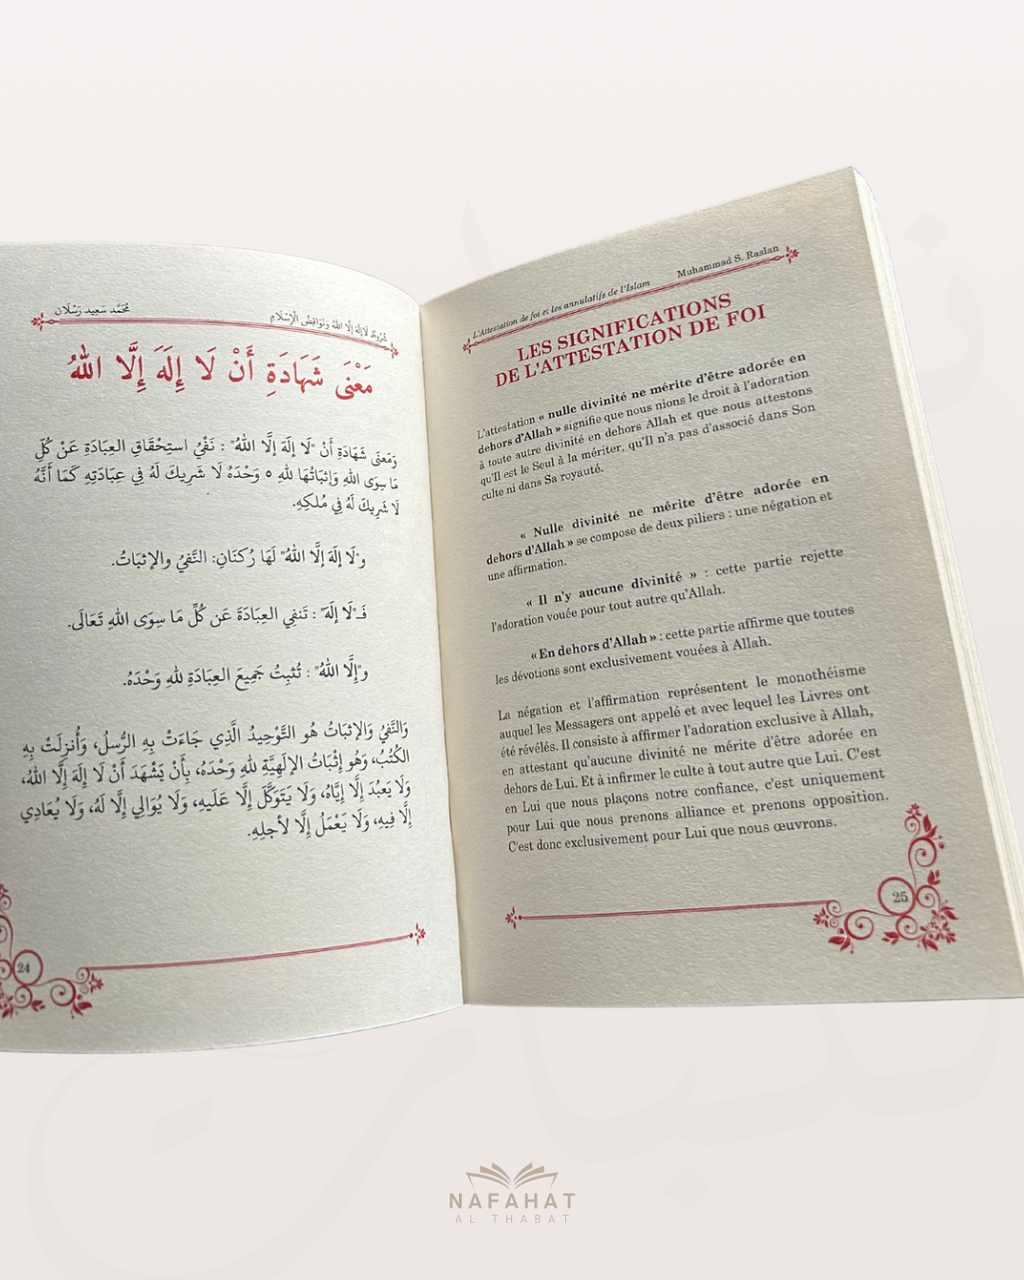 مُحَمَّد سَعِيد رَسْلَان
شُرُوطُ لَا إِلَهَ إِلَّا اللهُ وَنَوَاقِضُ الْإِسْلَامِ
مَعْنَى شَهَادَةِ أَنْ لَا إِلَهَ إِلَّا اللهُ
وَمَعنَى شَهَادَةِ أَنْ "لَا إِلَهَ إِلَّا اللهُ" : نَفْيُ استِحْقَاقِ العِبَادَةِ عَنْ كُلِّ
مَا سِوَى اللهِ وَإِثبَاتُهَا للهِ ٥ وَحْدَهُ لَا شَرِيكَ لَهُ فِي عِبَادَتِهِ كَمَا أَنَّهُ
لَا شَرِيكَ لَهُ فِي مُلكِهِ.
و"لَا إِلَهَ إِلَّا اللهُ" لَهَا رُكنَانِ: النَّفيُ والإثبَاتُ.
فَـ"لَا إِلَهَ" : تَنفِي العِبَادَةَ عَن كُلِّ مَا سِوَى اللهِ تَعَالَى.
و"إِلَّا اللهُ" : تُثبِتُ جَمِيعَ العِبَادَةِ للهِ وَحْدَهُ.
وَالنَّفيُ وَالإِثبَاتُ هُو التَّوْحِيدُ الَّذِي جَاءَتْ بِهِ الرُّسلُ، وَأُنزِلَتْ بِهِ
الكُتُبُ، وَهُو إِثْبَاتُ الإلَهِيَّةِ للهِ وَحْدَهُ، بِأَنْ يَشْهَدَ أَنْ لَا إِلَهَ إِلَّا اللهُ،
وَلَا يَعبُدَ إِلَّا إِيَّاهُ، وَلَا يَتَوَكَّلَ إِلَّا عَلَيهِ، وَلَا يُوَالِي إِلَّا لَهُ، وَلَا يُعَادِي
إِلَّا فِيهِ، وَلَا يَعْمَلُ إِلَّا لأجلِهِ.
24
L'Attestation de foi et les annulatifs de l'Islam
Muhammad S. Raslan
LES SIGNIFICATIONS
DE L'ATTESTATION DE FOI
L'attestation « nulle divinité ne mérite d'être adorée en
dehors d'Allah » signifie que nous nions le droit à l'adoration
à toute autre divinité en dehors Allah et que nous attestons
qu'Il est le Seul à la mériter, qu'Il n'a pas d'associé dans Son
culte ni dans Sa royauté.
« Nulle divinité ne mérite d'être adorée en
dehors d'Allah » se compose de deux piliers : une négation et
une affirmation.
« Il n'y aucune divinité » : cette partie rejette
l'adoration vouée pour tout autre qu'Allah.
«En dehors d'Allah » : cette partie affirme que toutes
les dévotions sont exclusivement vouées à Allah.
La négation et l'affirmation représentent le monothéisme
auquel les Messagers ont appelé et avec lequel les Livres ont
été révélés. Il consiste à affirmer l'adoration exclusive à Allah,
en attestant qu'aucune divinité ne mérite d'être adorée en
dehors de Lui. Et à infirmer le culte à tout autre que Lui. C'est
en Lui que nous plaçons notre confiance, c'est uniquement
pour Lui que nous prenons alliance et prenons opposition.
C'est donc exclusivement pour Lui que nous œuvrons.
25
NAFAHAT
AL THABAT